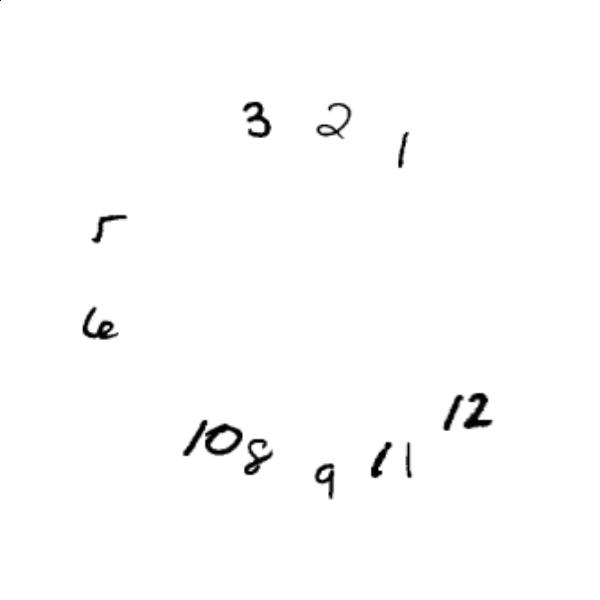 3 2 1
5
6
12
10 8 9 11